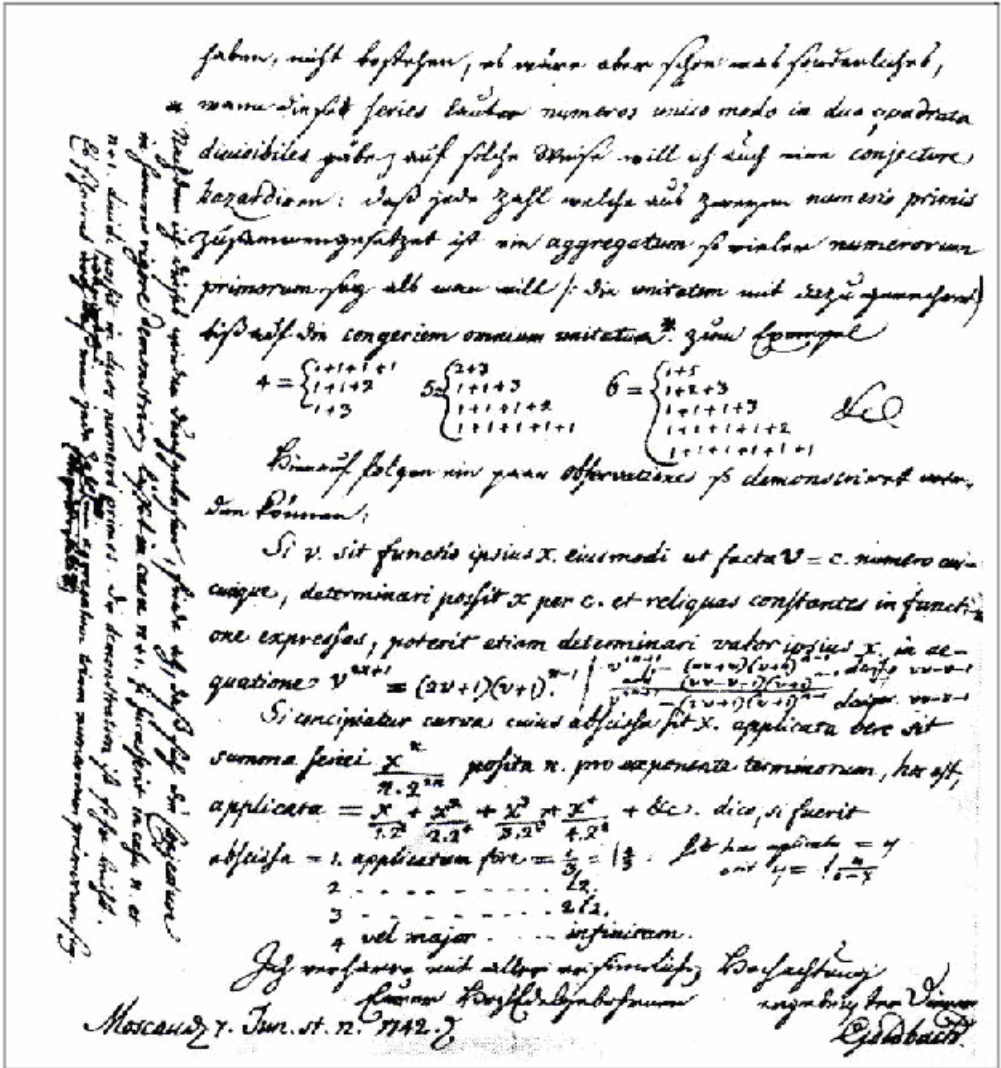 haben, nicht bestehen, es wäre aber schon was sonderliches,
wann diese series lauter numeros unico modo in duo quadrata
divisibiles gäbe, auf solche Weise will ich auch eine conjecture
hazardiren: daß jede Zahl welche aus zweyen numeris primis
zusammengesetzet ist ein aggregatum so vieler numerorum
primorum sey als man will /: die unitatem mit dazu gerechnet)
biß auf die congeriem omnium unitatum*. zum Exempel
4 = { 1+1+1+1
1+1+2
1+3
5 = { 2+3
1+1+3
1+1+1+2
1+1+1+1+1
6 = { 1+5
1+2+3
1+1+1+3
1+1+1+1+2
1+1+1+1+1+1
&c
Hierauf folgen ein paar observationes so demonstriret wer-
den können:
Si v. sit functio ipsius x. eiusmodi ut facta v = c. numero cui-
cunque, determinari possit x per c. et reliquas constantes in functi-
one expressas, poterit etiam determinari valor ipsius x. in ae-
quatione v^{2n+1} = (2v+1)(v+1)^{n-1}
Si concipiatur curva cuius abscissa sit x. applicata vero sit
summa seriei x^n/(n.2^{2n}) posita n. pro exponente terminorum, hoc est,
applicata = x/(1.2²) + x²/(2.2⁴) + x³/(3.2⁶) + x⁴/(4.2⁸) + &c. dico, si fuerit
abscissa = 1. applicatam fore = l4/3.
2 . . . . . . . . . l2.
3 . . . . . . . . . 2l2.
4 vel major . . . . infinitam.
Ich verharre mit aller ersinnlichen Hochachtung
Eurer Hochedelgebohrnen ergebenster Diener
Moscau d. 7. Jun. st. n. 1742.
Goldbach.
* Nachdem ich dieses wieder durchgelesen, finde ich, daß sich die conjecture
in summo rigore demonstriren lässet in casu n+1. si successerit in casu n. et
n+1. dividi possit in duos numeros primos. Die demonstration ist sehr leicht.
Es scheinet wenigstens, daß eine jede Zahl ein aggregatum trium numerorum primorum sey.